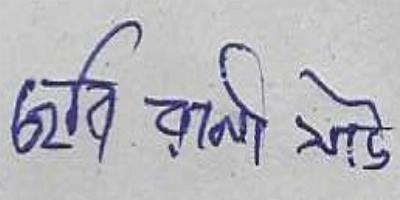 ছবি রানী সাউ